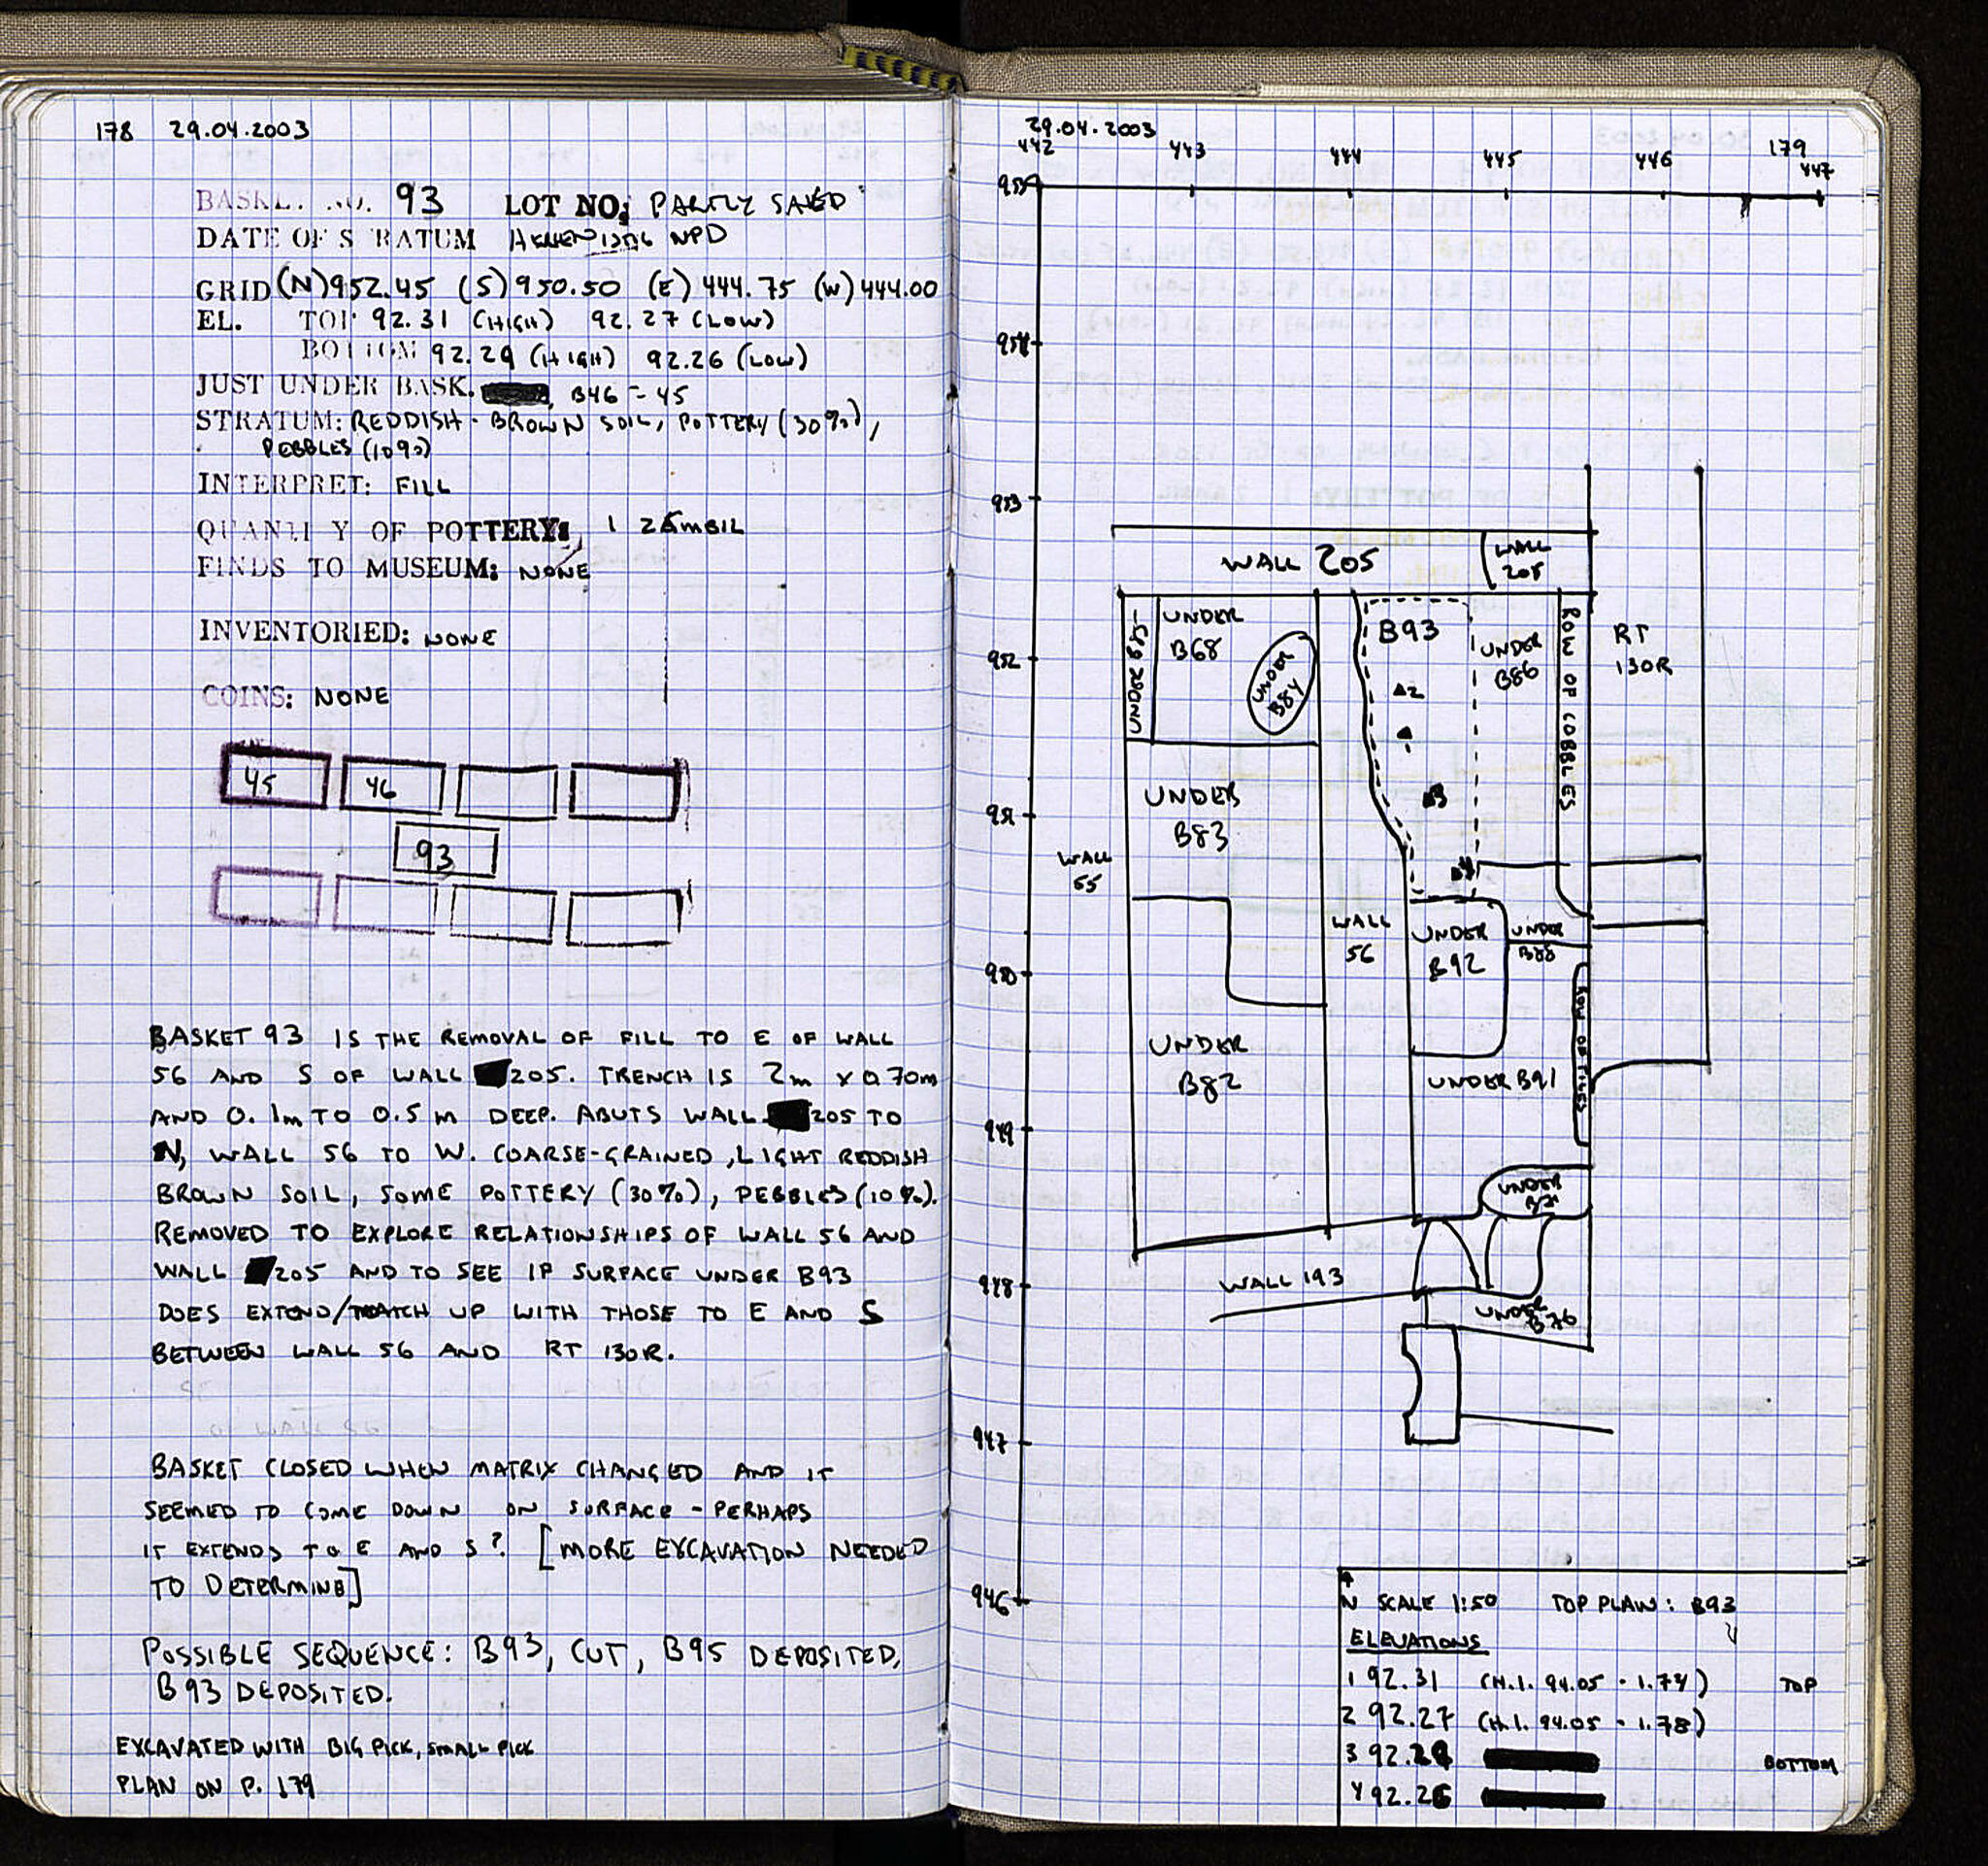 178 29.04.2003
BASK NO. 93 LOT NO: PARTLY SAVED
DATE OF STRATUM HELLENISTIC NPD
GRID (N) 952.45 (S) 950.50 (E) 444.75 (W) 444.00
EL. TOP 92.31 (HIGH) 92.27 (LOW)
BOTTOM 92.29 (HIGH) 92.26 (LOW)
JUST UNDER BASK. B46 - 45
STRATUM: REDDISH-BROWN SOIL, POTTERY (30%),
PEBBLES (10%)
INTERPRET: FILL
QUANTITY OF POTTERY: 1 ZAMBIL
FINDS TO MUSEUM: NONE
INVENTORIED: NONE
COINS: NONE
45 46
93
BASKET 93 IS THE REMOVAL OF FILL TO E OF WALL
56 AND S OF WALL 205. TRENCH IS 2m x 0.70m
AND 0.1m TO 0.5m DEEP. ABUTS WALL 205 TO
N, WALL 56 TO W. COARSE-GRAINED, LIGHT REDDISH
BROWN SOIL, SOME POTTERY (30%), PEBBLES (10%).
REMOVED TO EXPLORE RELATIONSHIPS OF WALL 56 AND
WALL 205 AND TO SEE IF SURFACE UNDER B93
DOES EXTEND/MATCH UP WITH THOSE TO E AND S
BETWEEN WALL 56 AND RT 130R.
BASKET CLOSED WHEN MATRIX CHANGED AND IT
SEEMED TO COME DOWN ON SURFACE - PERHAPS
IT EXTENDS TO E AND S? [MORE EXCAVATION NEEDED
TO DETERMINE]
POSSIBLE SEQUENCE: B93, CUT, B95 DEPOSITED,
B93 DEPOSITED.
EXCAVATED WITH BIG PICK, SMALL PICK
PLAN ON P. 179
29.04.2003
179
442 443 444 445 446 447
955
954
953
WALL 205
WALL
205
UNDER
UNDER
B68
UNDER
B84
B93
UNDER
B86
ROW OF COBBLES
RT
130R
952
2
1
3
951
4
UNDER
B83
WALL
55
WALL
56
UNDER
B92
UNDER
B88
950
ROW OF TILES
UNDER
B82
UNDER B91
949
UNDER
948
WALL 193
UNDER
B76
947
946
N SCALE 1:50 TOP PLAN: B93
ELEVATIONS
1 92.31 (H.I. 94.05 - 1.74) TOP
2 92.27 (H.I. 94.05 - 1.78)
3 92.29 BOTTOM
4 92.26